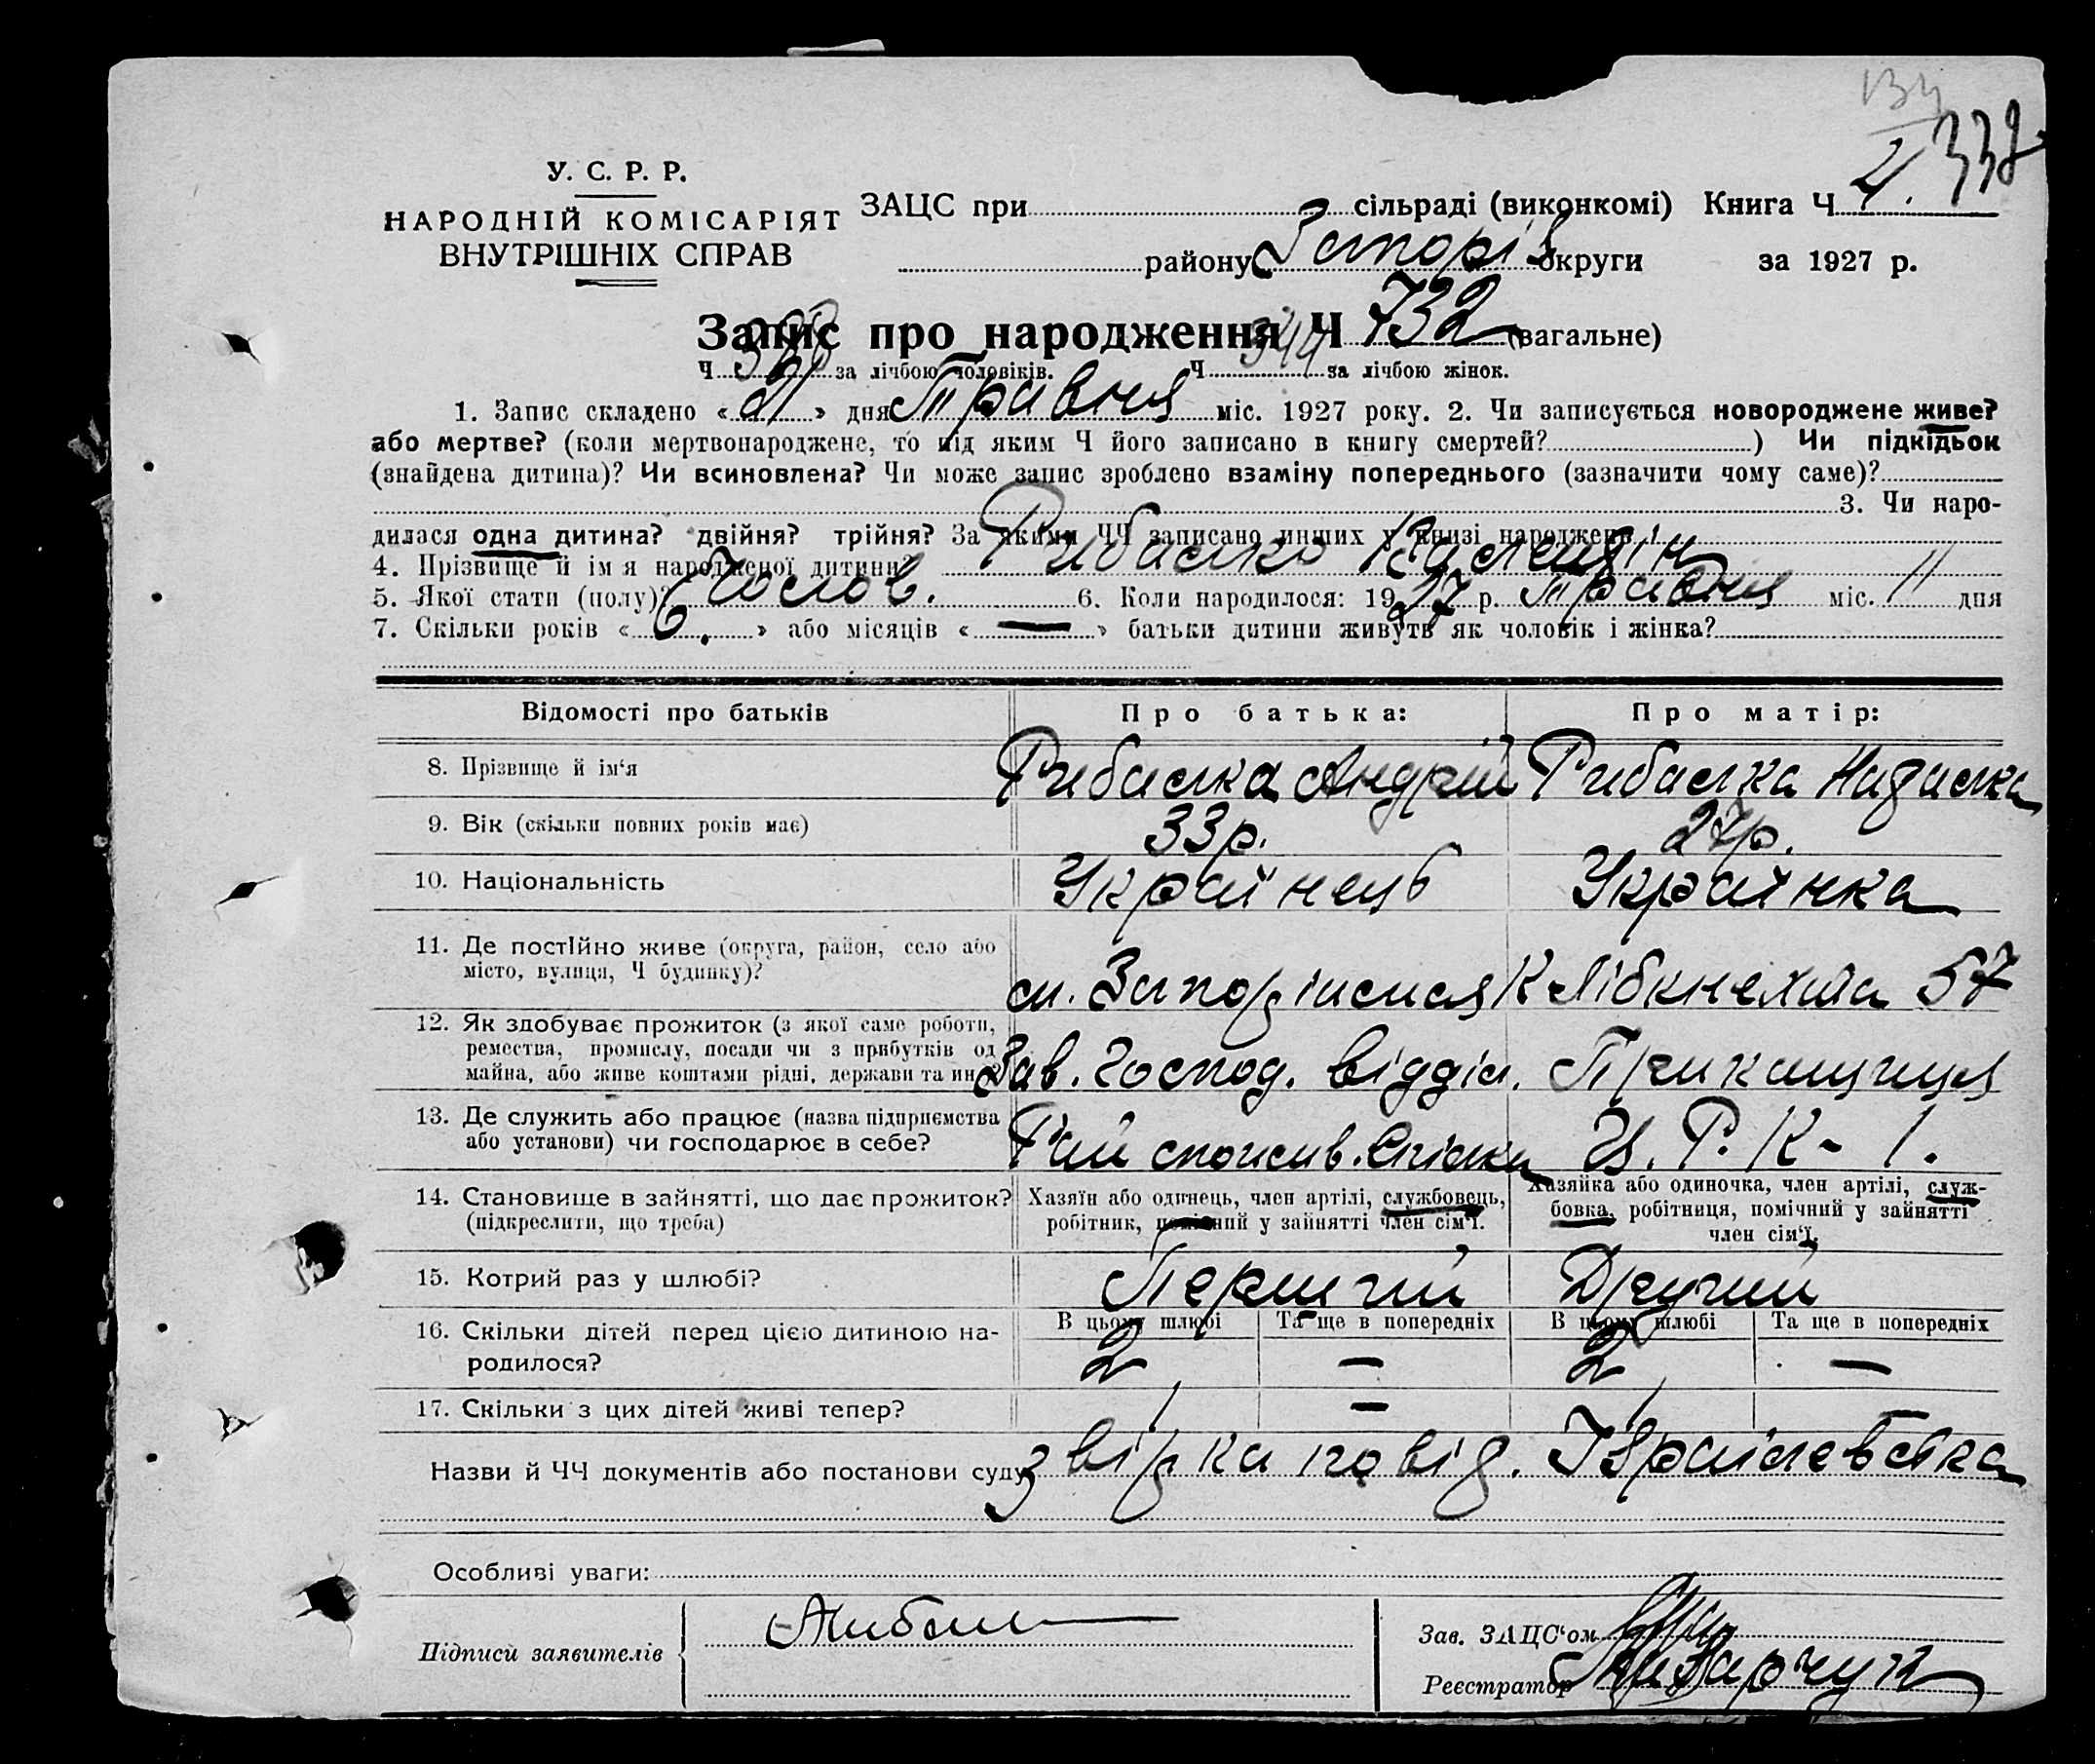 134
338
У. С. Р. Р.
НАРОДНІЙ КОМІСАРІЯТ
ВНУТРІШНІХ СПРАВ
ЗАЦС при сільраді (виконкомі) Книга Ч
району округи за 1927 р.
Запис про народження Ч 732 (загальне)
Ч 388 за лічбою чоловіків. Ч 344 за лічбою жінок.
1. Запис складено « 21 » дня Травня міс. 1927 року. 2. Чи записується новороджене живе?
або мертве? (коли мертвонароджене, то під яким Ч його записано в книгу смертей? ) Чи підкідьок
(знайдена дитина)? Чи всиновлена? Чи може запис зроблено взаміну попереднього (зазначити чому саме)?
3. Чи наро-
дилася одна дитина? двійня? трійня? За якими ЧЧ записано инших у книзі народжень
4. Прізвище й ім я народженої дитини?
5. Якої стати (полу)? Чолов. 6. Коли народилося: 1927 р. Травня міс. 11 дня
7. Скільки років « 6. » або місяців « — » батьки дитини живуть як чоловік і жінка?
Відомості про батьків Про батька: Про матір:
8. Прізвище й ім‘я Рибалка Андрій Рибалка
9. Вік (скільки повних років має) 33 р. 27 р.
10. Національність Українець Українка
11. Де постійно живе (округа, район, село або
місто, вулиця, Ч будинку)? м. Запоріжжя К Лібкнехта 57
12. Як здобуває прожиток (з якої саме роботи,
ремества, промислу, посади чи з прибутків од
майна, або живе коштами рідні, держави та ин.)? Зав. Господ. відділ. Прикащиця
13. Де служить або працює (назва підприємства
або установи) чи господарює в себе? Рай спожив. Спілка Ц. Р. К - 1.
14. Становище в зайнятті, що дає прожиток?
(підкреслити, що треба)
Хазяїн або одинець, член артілі, службовець,
робітник, помічний у зайнятті член сім‘ї.
Хазяйка або одиночка, член артілі, служ-
бовка, робітниця, помічний у зайнятті
член сім‘ї.
15. Котрий раз у шлюбі? Перший Другий
В цьому шлюбі Та ще в попередніх В цьому шлюбі Та ще в попередніх
16. Скільки дітей перед цією дитиною на-
родилося? 2 — 2 —
17. Скільки з цих дітей живі тепер? 1 — 1 —
Назви й ЧЧ документів або постанови суду
Особливі уваги:
Підписи заявителів
Зав. ЗАЦС‘ом
Реєстратор